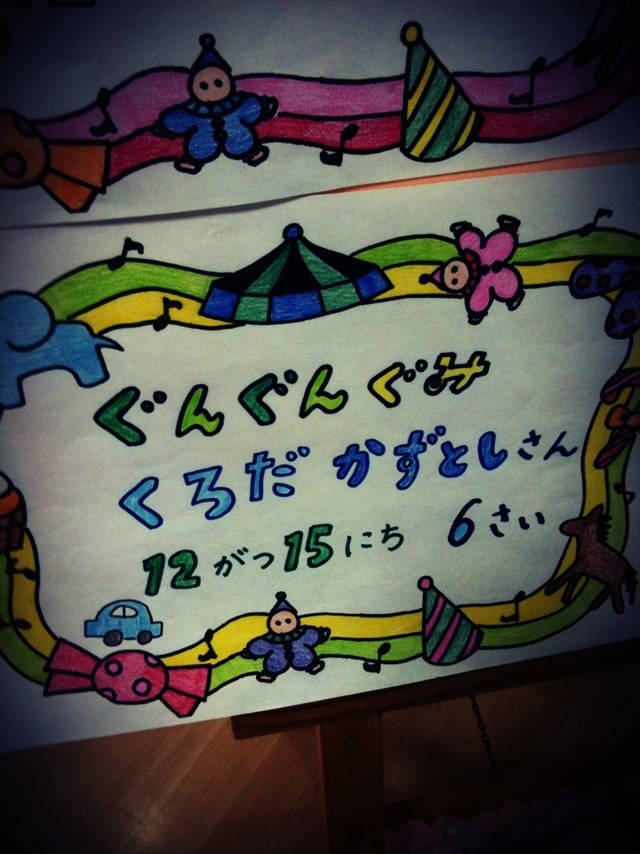 ぐんぐんぐみ
くろだ かずとしさん
12がつ15にち 6さい